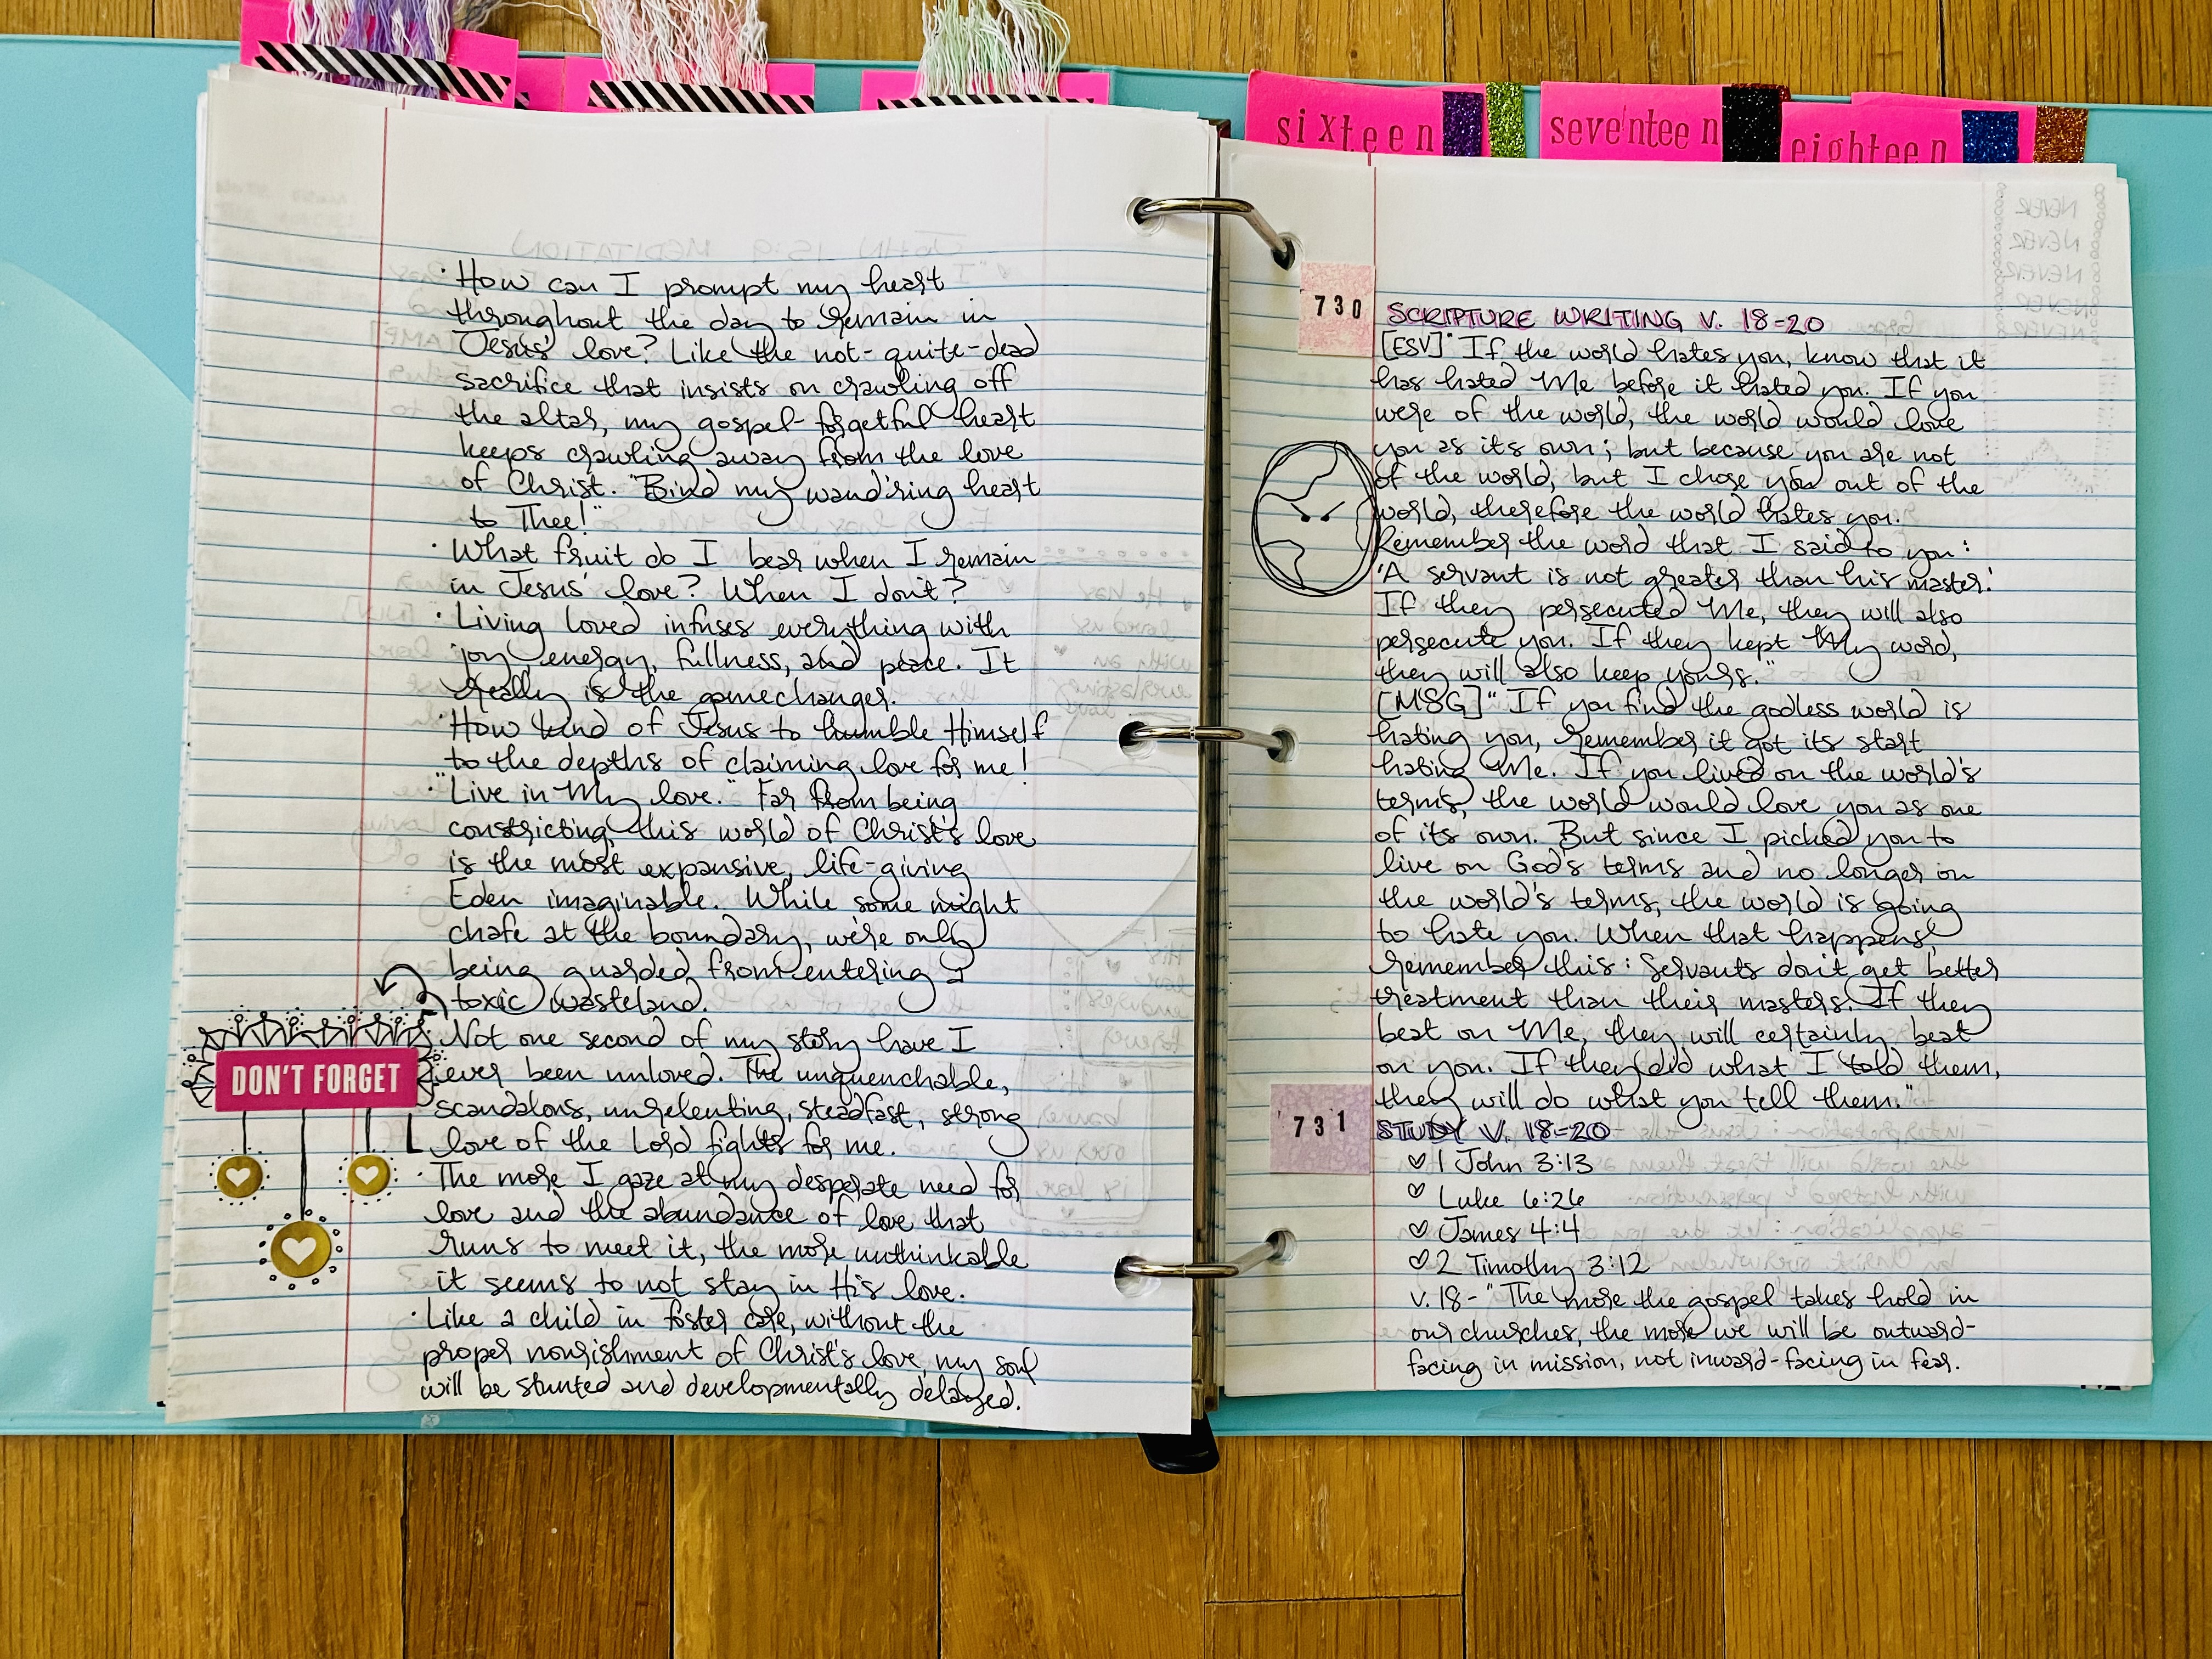 sixteen
seventeen
eighteen
· How can I prompt my heart
throughout the day to remain in
Jesus' love? Like the not-quite-dead
sacrifice that insists on crawling off
the altar, my gospel-forgetful heart
keeps crawling away from the love
of Christ. "Bind my wand'ring heart
to Thee!"
· What fruit do I bear when I remain
in Jesus' love? When I don't?
· Living loved infuses everything with
joy, energy, fullness, and peace. It
really is the gamechanger.
· How kind of Jesus to humble Himself
to the depths of claiming love for me!
· "Live in My love." Far from being
constricting, this world of Christ's love
is the most expansive, life-giving
Eden imaginable. While some might
chafe at the boundary, we're only
being guarded from entering a
toxic wasteland.
DON'T FORGET
Not one second of my story have I
ever been unloved. The unquenchable,
scandalous, unrelenting, steadfast, strong
love of the Lord fights for me.
· The more I gaze at my desperate need for
love and the abundance of love that
runs to meet it, the more unthinkable
it seems to not stay in His love.
· Like a child in foster care, without the
proper nourishment of Christ's love, my soul
will be stunted and developmentally delayed.
730
SCRIPTURE WRITING V. 18-20
[ESV] "If the world hates you, know that it
has hated Me before it hated you. If you
were of the world, the world would love
you as its own; but because you are not
of the world, but I chose you out of the
world, therefore the world hates you.
Remember the word that I said to you:
'A servant is not greater than his master.'
If they persecuted Me, they will also
persecute you. If they kept My word,
they will also keep yours."
[MSG] "If you find the godless world is
hating you, remember it got its start
hating Me. If you lived on the world's
terms, the world would love you as one
of its own. But since I picked you to
live on God's terms and no longer on
the world's terms, the world is going
to hate you. When that happens,
remember this: Servants don't get better
treatment than their masters. If they
beat on Me, they will certainly beat
on you. If they did what I told them,
they will do what you tell them."
731
STUDY V. 18-20
♡ 1 John 3:13
♡ Luke 6:26
♡ James 4:4
♡ 2 Timothy 3:12
v. 18- "The more the gospel takes hold in
our churches, the more we will be outward-
facing in mission, not inward-facing in fear.